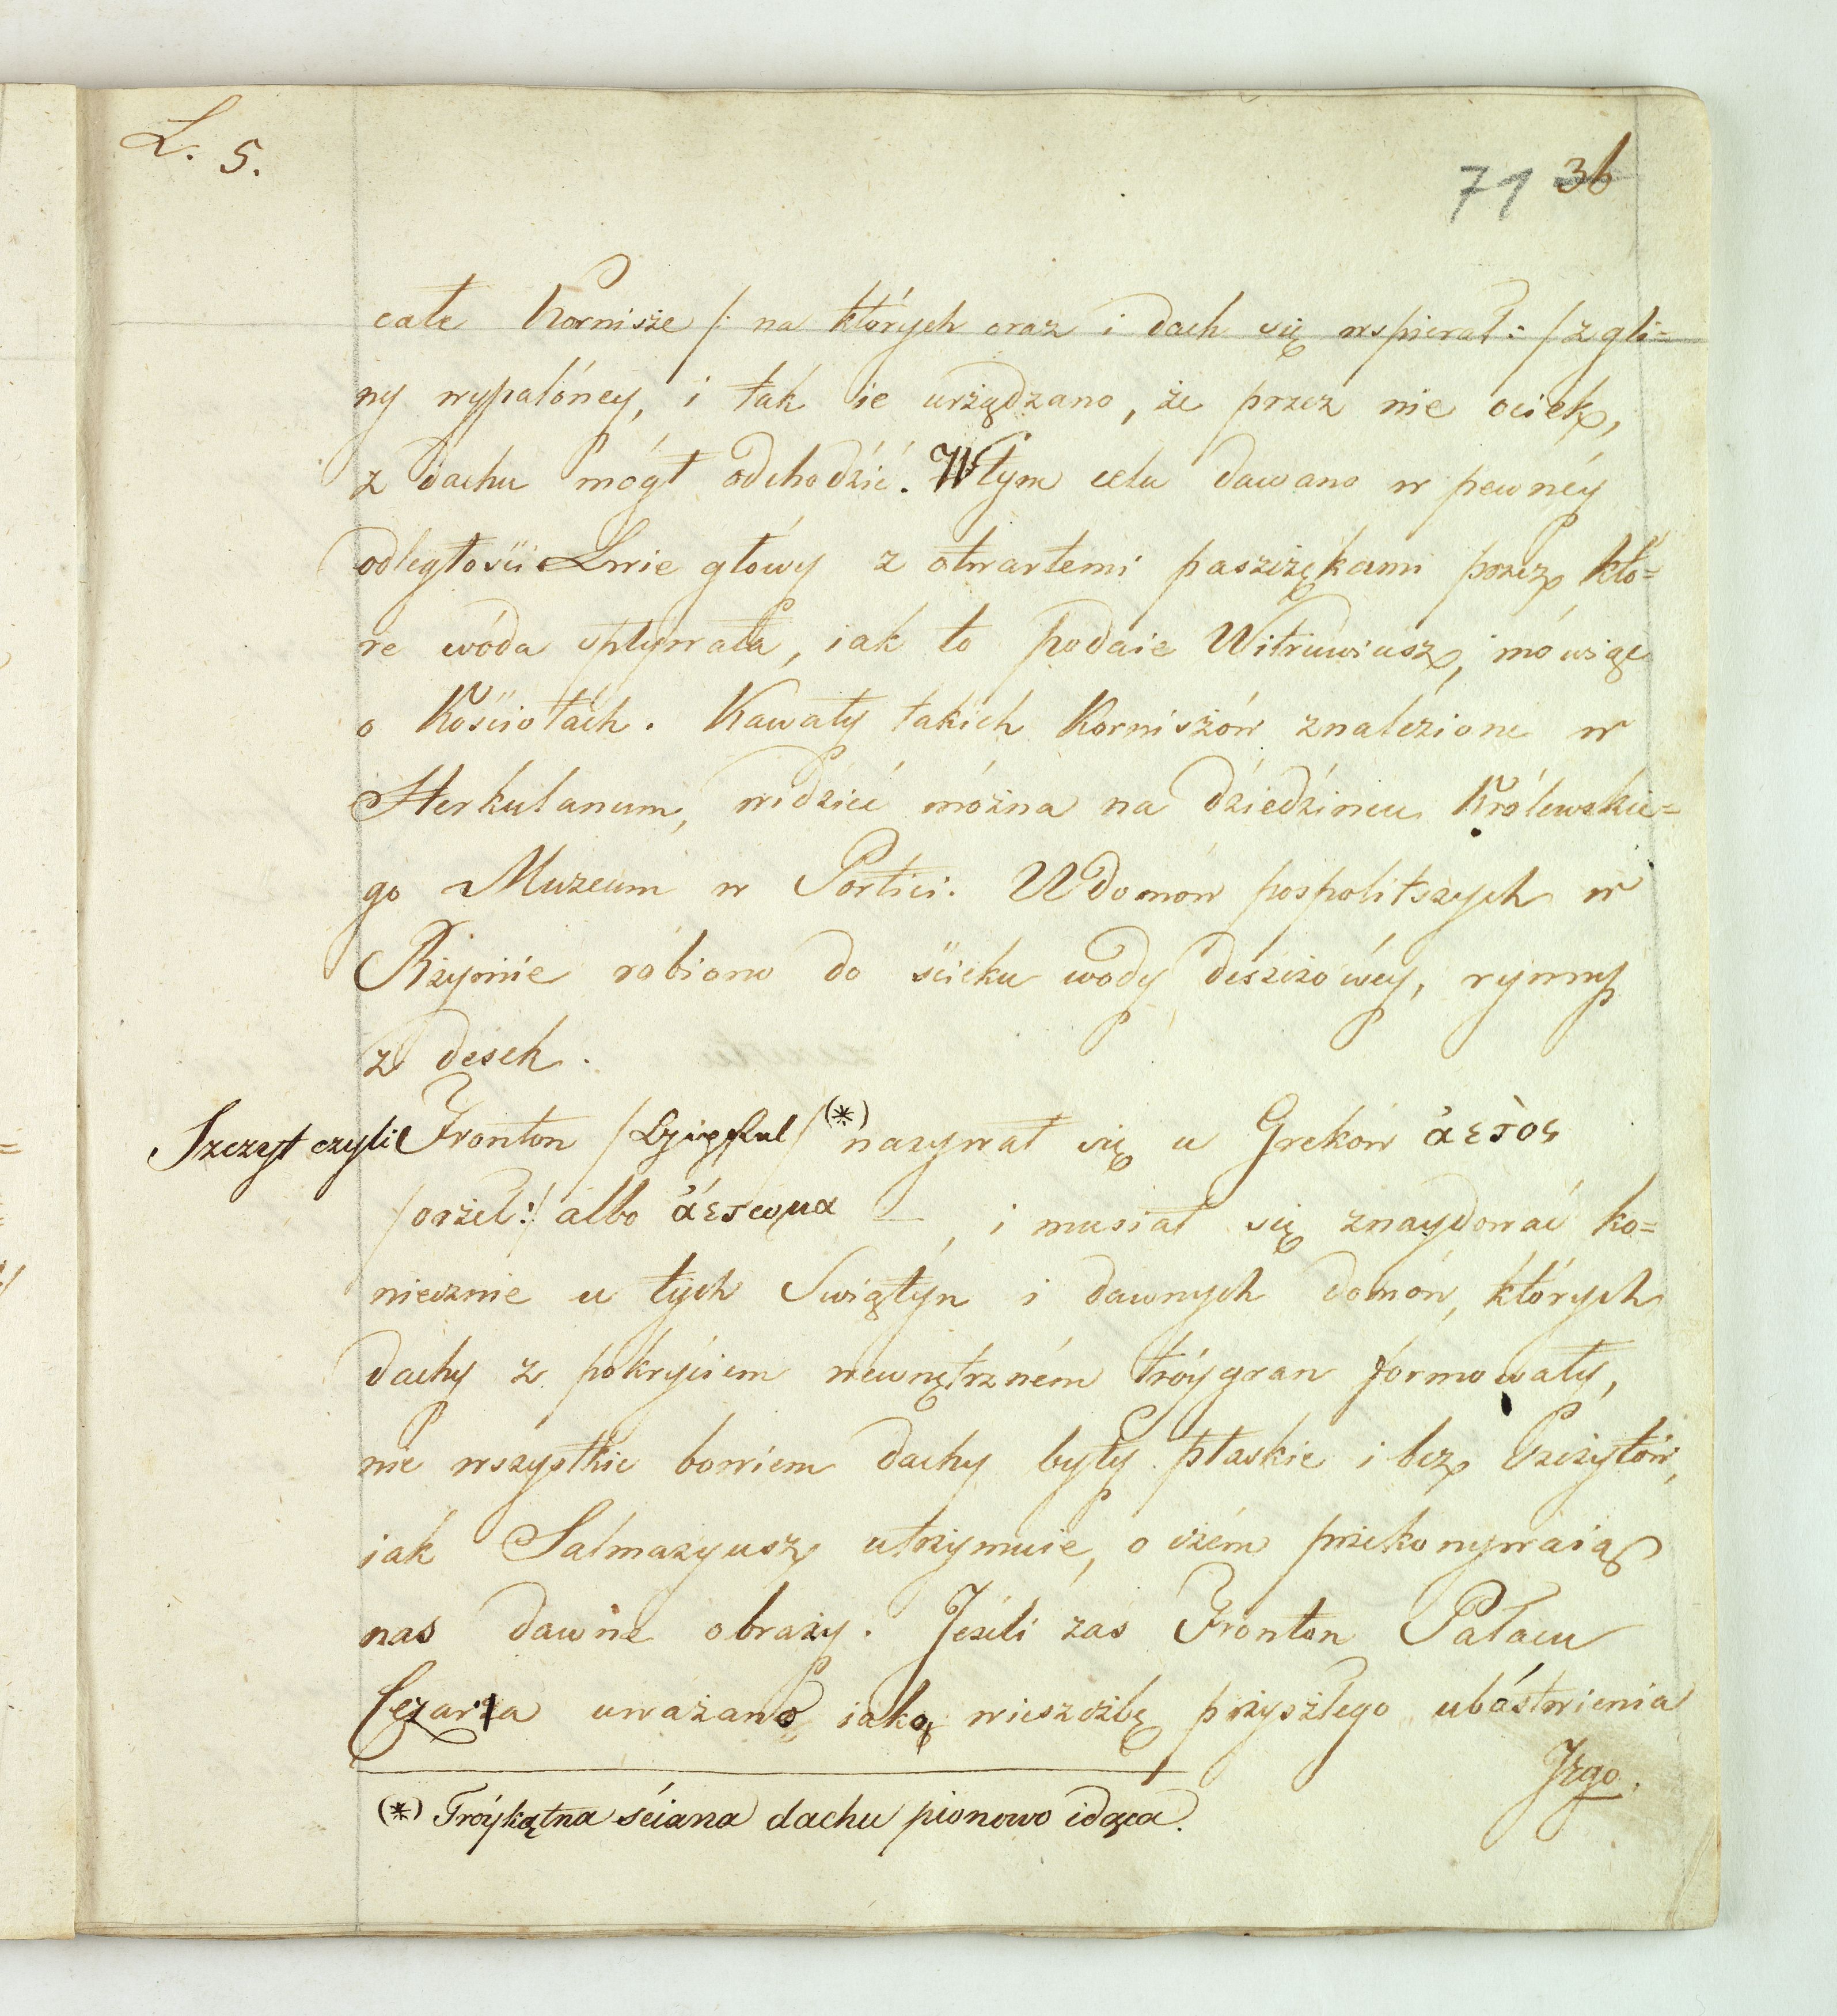 L. 5.
71 36
całe Kornisze /: na których oraz i dach się wspierał: / z gli=
ny wypalóney, i tak ie urządzano, że przez nie ociek,
z dachu mógł odchodzić. W tym celu dawano w pewnéy
odległości Lwie głowy z otwartemi paszczękami przez któ=
re wóda spływała, iak to podaie Witruwiusz, mówiąc
o Kościołach. Kawały takich Korniszów znalezione w
Herkulanum, widzieć móżna na dziedzińcu Królewskie=
go Muzeum w Portici. U domów pospolitszych w
Rzymie robiono do ścieku wody deszczowéy, rynny
z desek.
Szczyt czyli Fronton / Gipfel / (*) nazywał się u Greków ἀετος
/ orzeł :/ albo ἀέτωμα — , i musiał się znaydować ko=
niecznie u tych Swiątyn i dawnych domów, których
dachy z pokryciem wewnętrzném tróygran formowały,
nie wszystkie bowiem dachy były płaskie i bez Szczytów,
iak Salmazyusz utrzymuie, o czém przekonywaią
nas dawne obrazy. Jeżeli zaś Fronton Pałacu
Cezara uważano, iako wieszczbę przyszłego ubóstwienia
Jego.
(*) Tróykątna ściana dachu pionowo idąca.